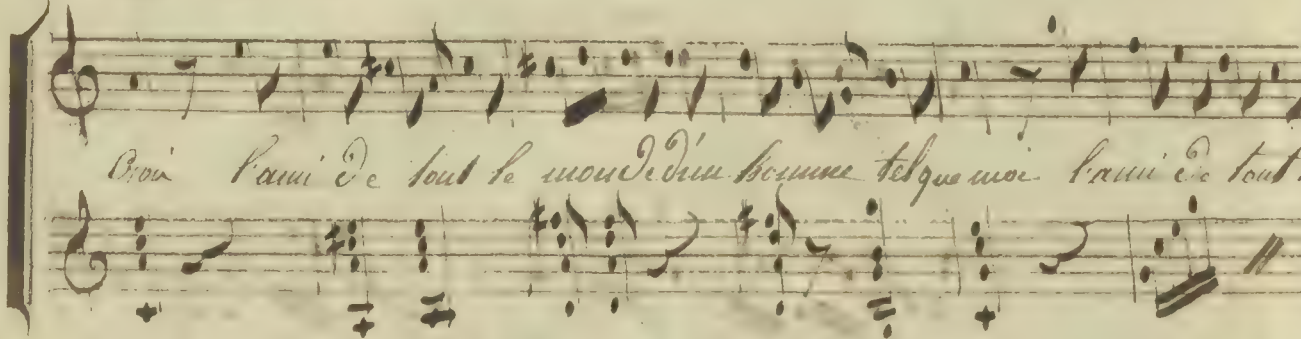 l'ami de tout le monde d'un homme tel que moi l'ami de tout